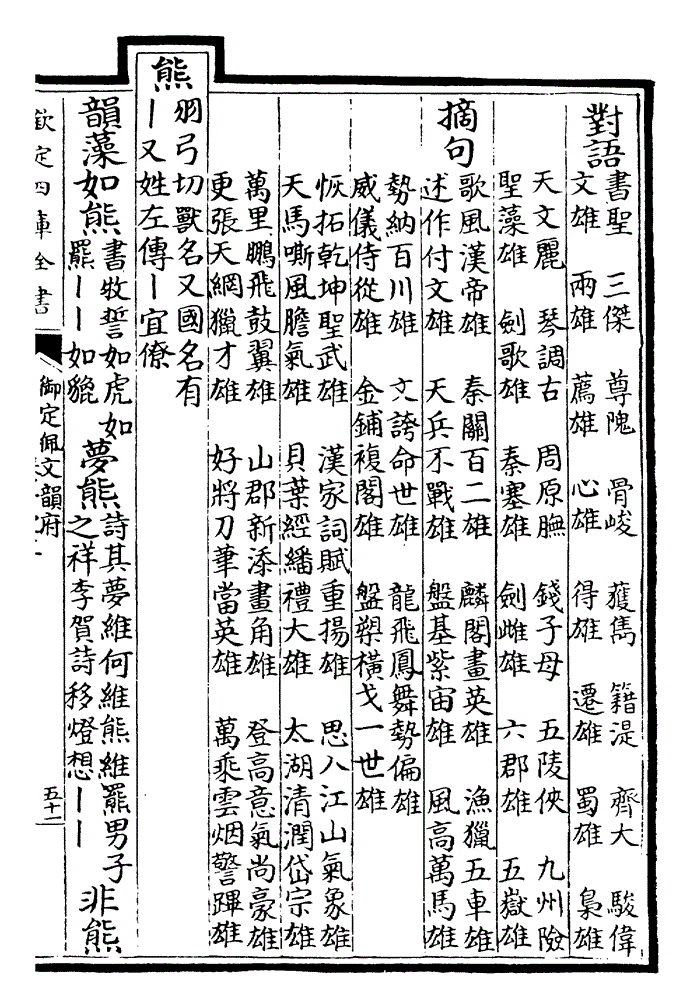 對語
書聖　三傑　尊隗　骨峻　獲雋　籍湜　齊大　駿偉
文雄　兩雄　薦雄　心雄　得雄　遷雄　蜀雄　梟雄
天文麗　琴調古　周原膴　錢子母　五陵俠　九州險
聖藻雄　劍歌雄　秦塞雄　劍雌雄　六郡雄　五嶽雄
摘句
歌風漢帝雄　秦關百二雄　麟閣畫英雄　漁獵五車雄
述作付文雄　天兵不戰雄　盤基紫宙雄　風高萬馬雄
勢納百川雄　文誇命世雄　龍飛鳳舞勢偏雄
威儀侍從雄　金鋪複閣雄　盤槊橫戈一世雄
恢拓乾坤聖武雄　漢家詞賦重揚雄　思入江山氣象雄
天馬嘶風膽氣雄　貝葉經繙禮大雄　太湖清潤岱宗雄
萬里鵬飛鼓翼雄　山郡新添畫角雄　登高意氣尚豪雄
更張天網獵才雄　好將刀筆當英雄　萬乘雲烟警蹕雄
熊
羽弓切獸名又國名有
｜又姓左傳｜宜僚
韻藻如熊
書牧誓如虎如
羆｜｜如貔
夢熊
詩其夢維何維熊維羆男子
之祥李賀詩移燈想｜｜
非熊
欽定四庫全書
御定佩文韻府
五十一